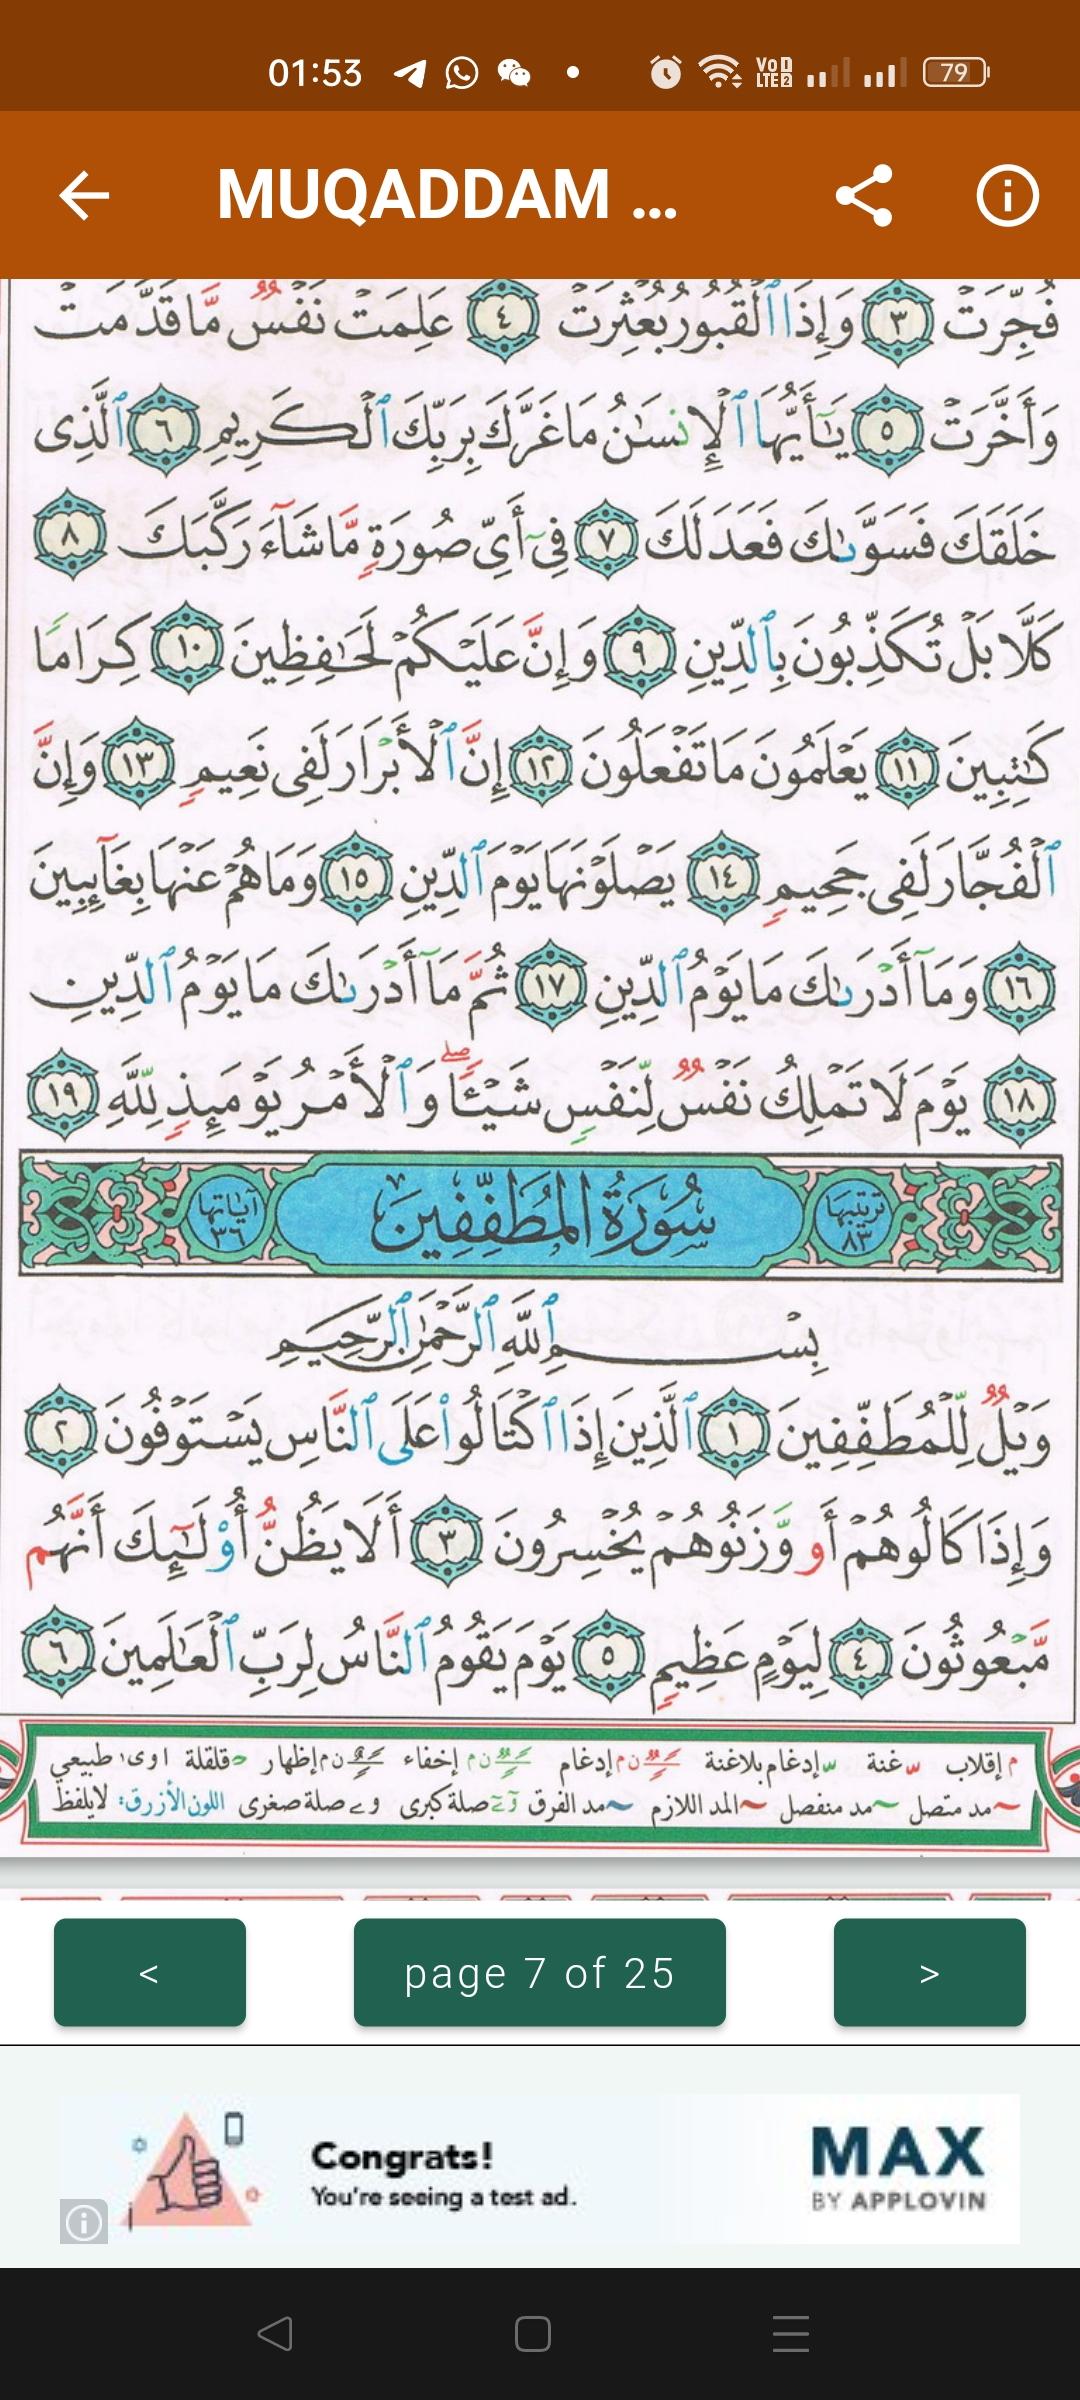 01:53
VoD LTE2
79
MUQADDAM ...
فُجِّرَتْ ٣ وَإِذَا ٱلْقُبُورُ بُعْثِرَتْ ٤ عَلِمَتْ نَفْسٌ مَّا قَدَّمَتْ
وَأَخَّرَتْ ٥ يَـٰٓأَيُّهَا ٱلْإِنسَـٰنُ مَا غَرَّكَ بِرَبِّكَ ٱلْكَرِيمِ ٦ ٱلَّذِى
خَلَقَكَ فَسَوَّىٰكَ فَعَدَلَكَ ٧ فِىٓ أَىِّ صُورَةٍ مَّا شَآءَ رَكَّبَكَ ٨
كَلَّا بَلْ تُكَذِّبُونَ بِٱلدِّينِ ٩ وَإِنَّ عَلَيْكُمْ لَحَـٰفِظِينَ ١٠ كِرَامًا
كَـٰتِبِينَ ١١ يَعْلَمُونَ مَا تَفْعَلُونَ ١٢ إِنَّ ٱلْأَبْرَارَ لَفِى نَعِيمٍ ١٣ وَإِنَّ
ٱلْفُجَّارَ لَفِى جَحِيمٍ ١٤ يَصْلَوْنَهَا يَوْمَ ٱلدِّينِ ١٥ وَمَا هُمْ عَنْهَا بِغَآئِبِينَ
١٦ وَمَآ أَدْرَىٰكَ مَا يَوْمُ ٱلدِّينِ ١٧ ثُمَّ مَآ أَدْرَىٰكَ مَا يَوْمُ ٱلدِّينِ
١٨ يَوْمَ لَا تَمْلِكُ نَفْسٌ لِّنَفْسٍ شَيْـًٔا ۖ وَٱلْأَمْرُ يَوْمَئِذٍ لِّلَّهِ ١٩
ترتيبها ٨٣ سُورَةُ المُطَفِّفِينَ آياتها ٣٦
بِسْمِ ٱللَّهِ ٱلرَّحْمَـٰنِ ٱلرَّحِيمِ
وَيْلٌ لِّلْمُطَفِّفِينَ ١ ٱلَّذِينَ إِذَا ٱكْتَالُوا۟ عَلَى ٱلنَّاسِ يَسْتَوْفُونَ ٢
وَإِذَا كَالُوهُمْ أَو وَّزَنُوهُمْ يُخْسِرُونَ ٣ أَلَا يَظُنُّ أُو۟لَـٰٓئِكَ أَنَّهُم
مَّبْعُوثُونَ ٤ لِيَوْمٍ عَظِيمٍ ٥ يَوْمَ يَقُومُ ٱلنَّاسُ لِرَبِّ ٱلْعَـٰلَمِينَ ٦
م إقلاب غنة إدغام بلاغنة ن م إدغام ن م إخفاء ن م إظهار قلقلة ا و ى طبيعي
مد متصل مد منفصل المد اللازم مد الفرق صلة كبرى و ے صلة صغرى اللون الأزرق: لايلفظ
< page 7 of 25 >
Congrats!
You're seeing a test ad.
MAX
BY APPLOVIN